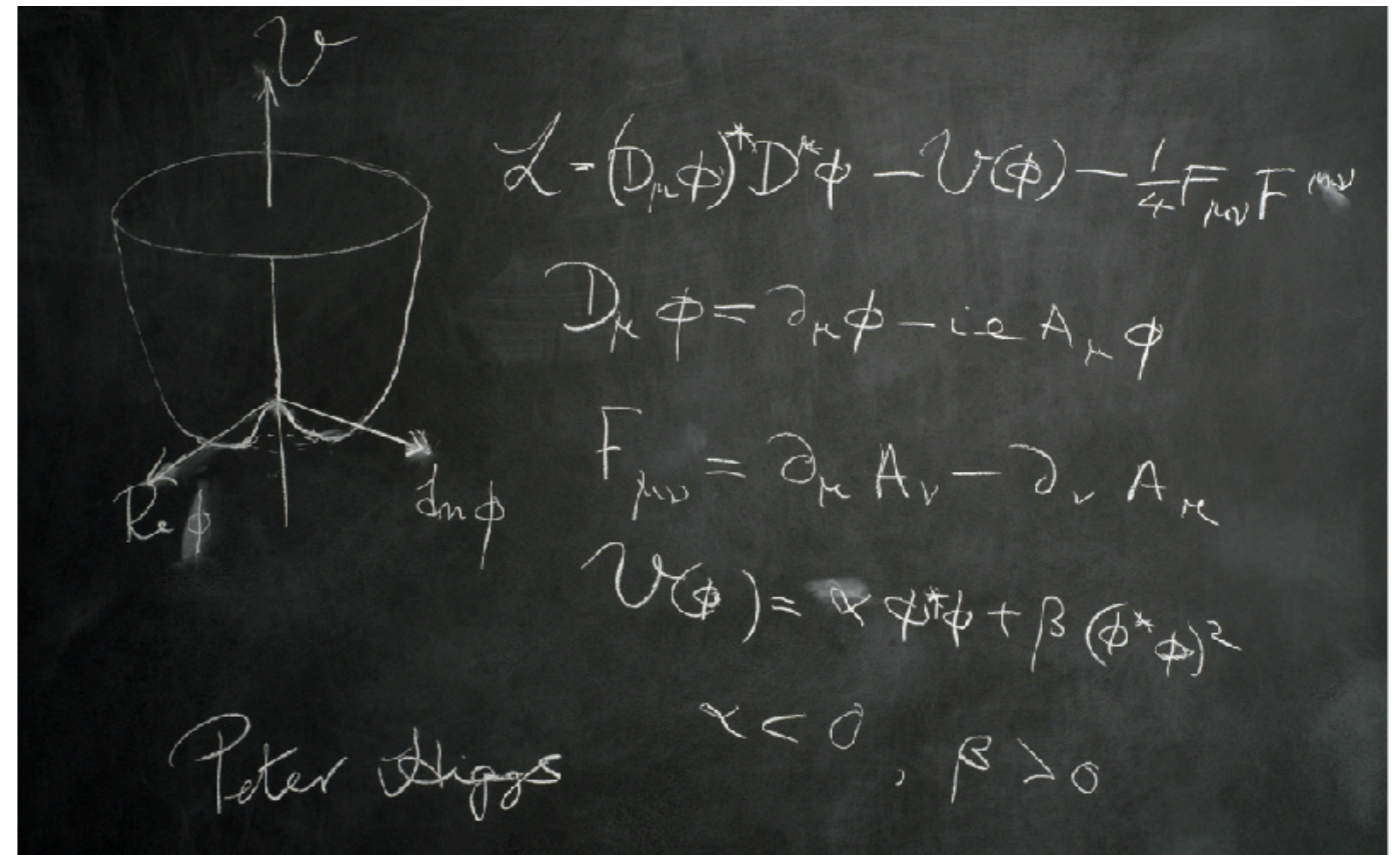 V
ℒ = (D_μ ϕ)* D^μ ϕ − V(ϕ) − 1/4 F_μν F^μν
D_μ ϕ = ∂_μ ϕ − i e A_μ ϕ
F_μν = ∂_μ A_ν − ∂_ν A_μ
Re ϕ
Im ϕ
V(ϕ) = α ϕ*ϕ + β (ϕ*ϕ)²
α < 0, β > 0
Peter Higgs